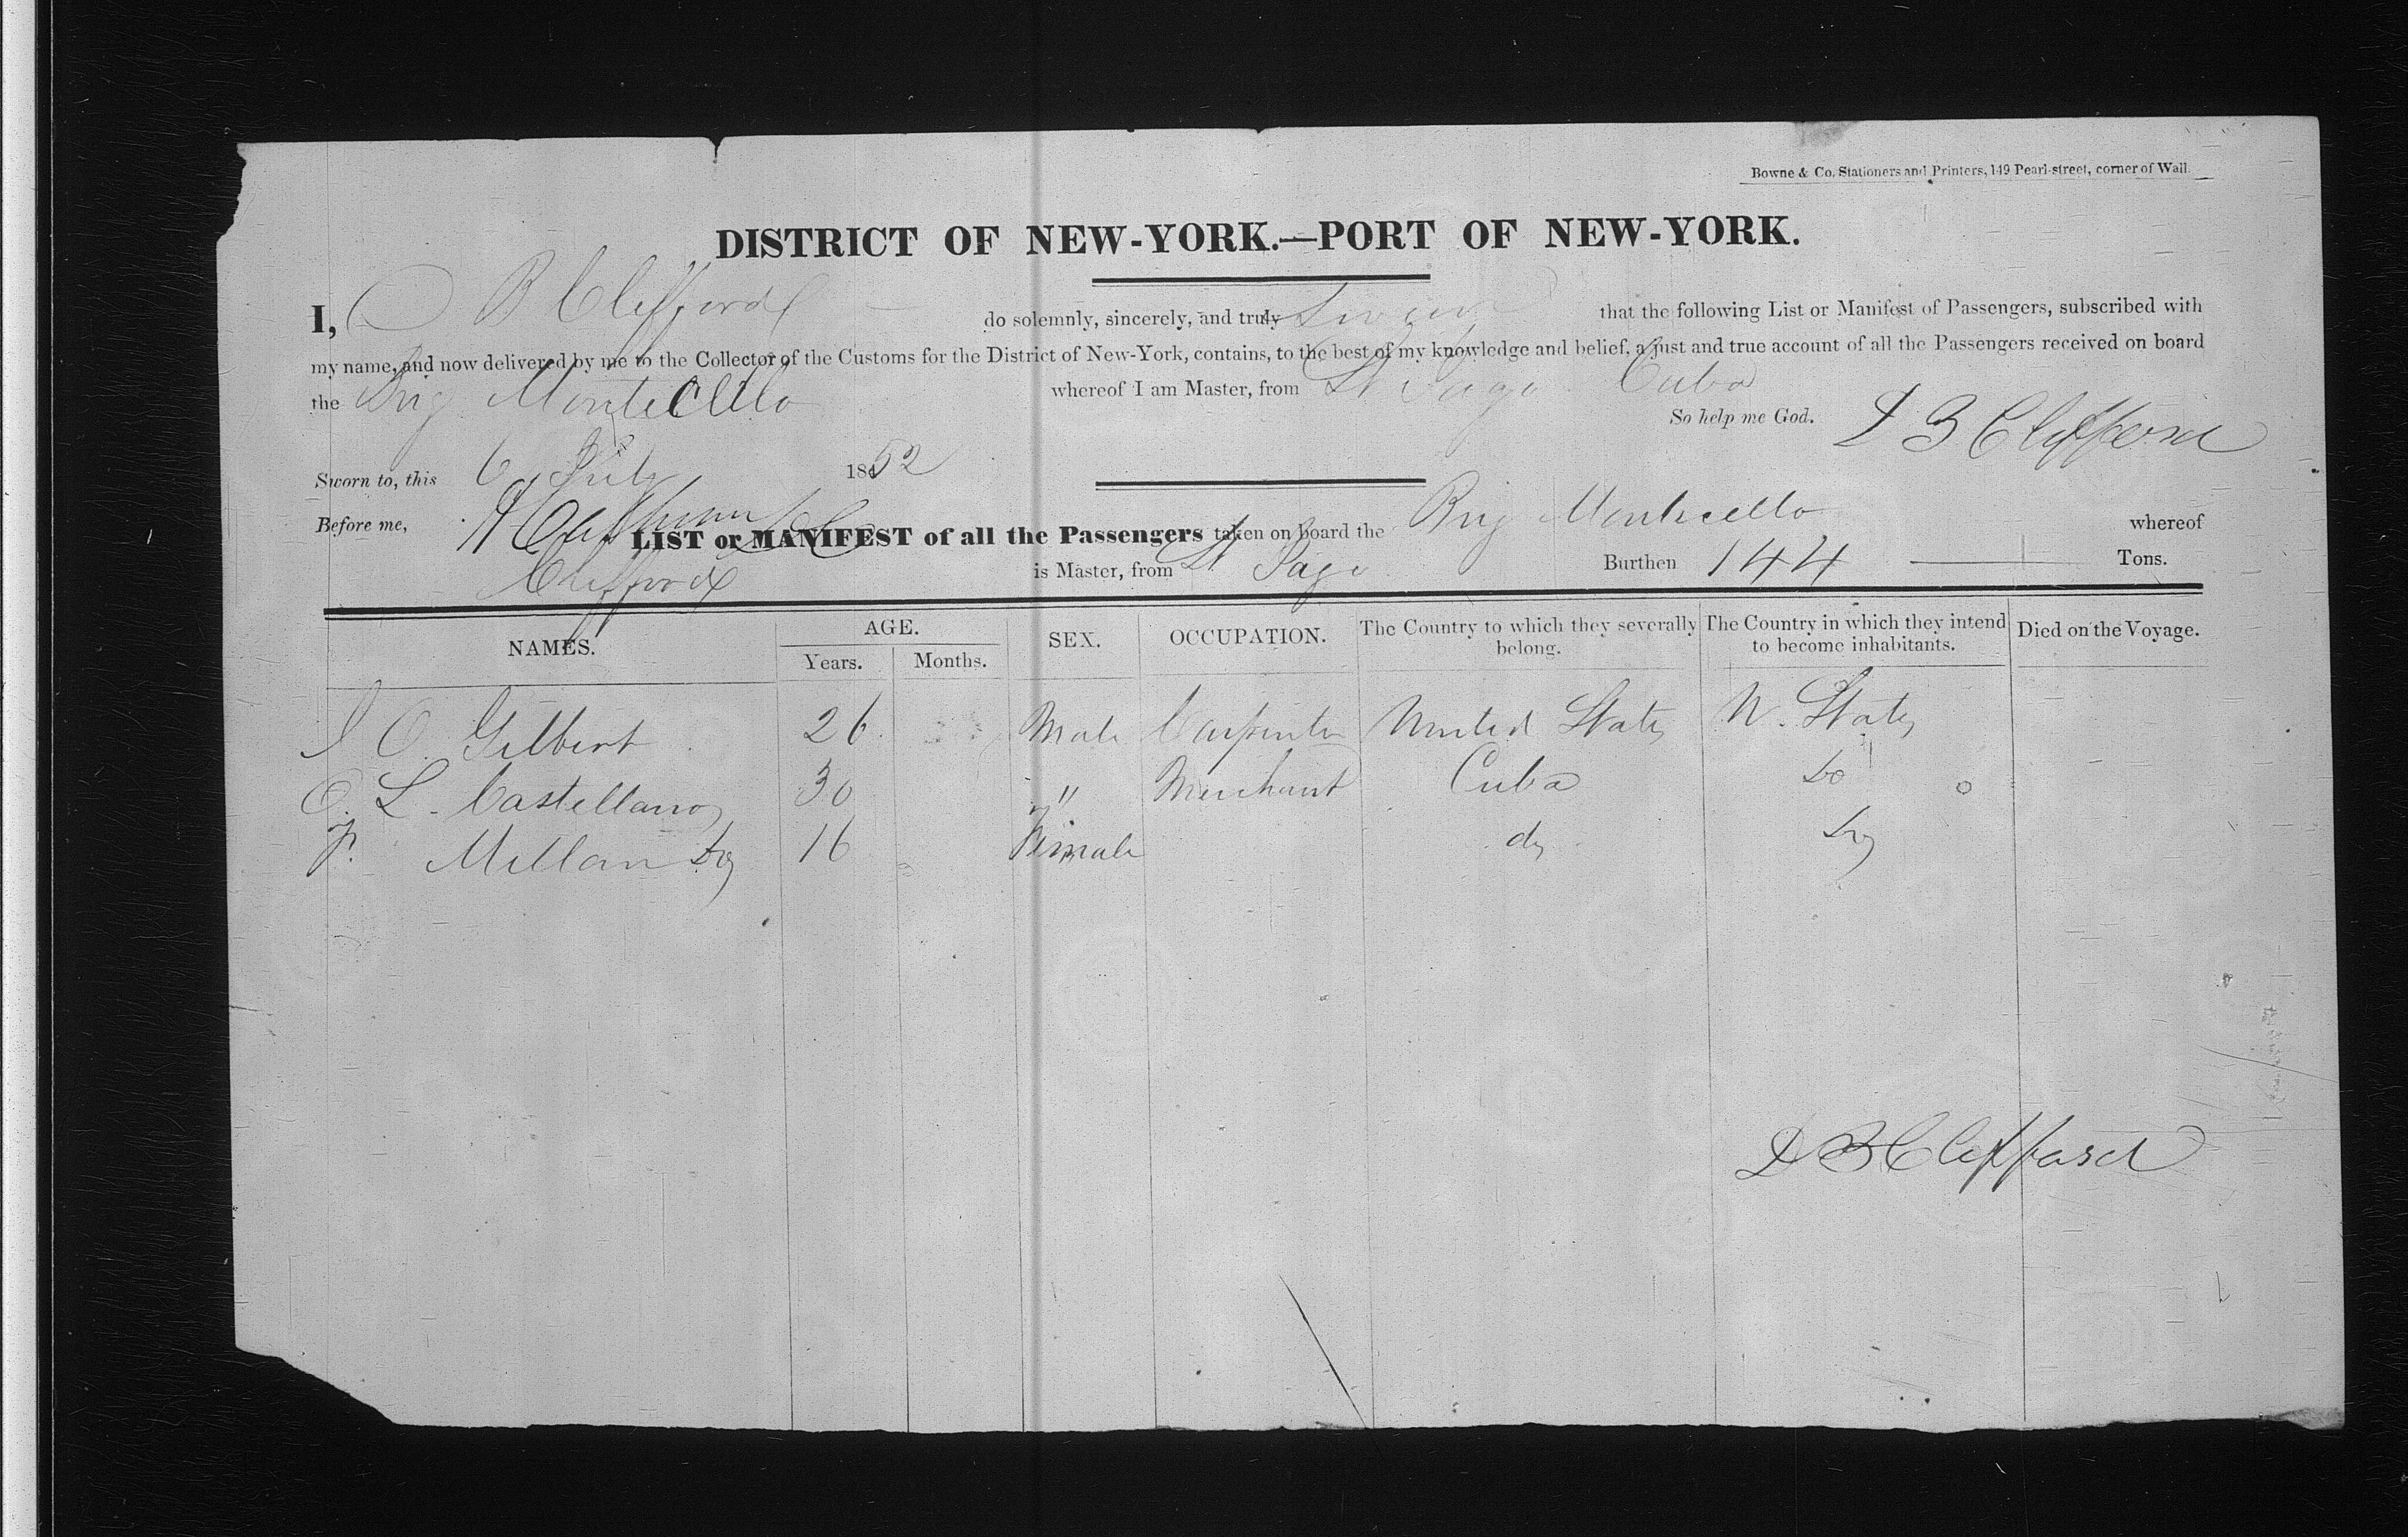 Bowne & Co. Stationers and Printers, 149 Pearl-street, corner of Wall.
DISTRICT OF NEW-YORK.—PORT OF NEW-YORK.
I, D B Clifford do solemnly, sincerely, and truly Swear that the following List or Manifest of Passengers, subscribed with
my name, and now delivered by me to the Collector of the Customs for the District of New-York, contains, to the best of my knowledge and belief, a just and true account of all the Passengers received on board
the Brig Monticello whereof I am Master, from St Iago Cuba
So help me God. D B Clifford
Sworn to, this 6 July 1852
Before me,
LIST or MANIFEST of all the Passengers taken on board the Brig Monticello whereof
Clifford is Master, from St Iago Burthen 144 Tons.
NAMES. AGE. Years. Months. SEX. OCCUPATION. The Country to which they severally belong. The Country in which they intend to become inhabitants. Died on the Voyage.
I C. Gilbert 26 Male Carpenter United States U. States
C. L. Castellanos 30 " Merchant Cuba Do
F. Millan Do 16 Female do Do
D B Clifford